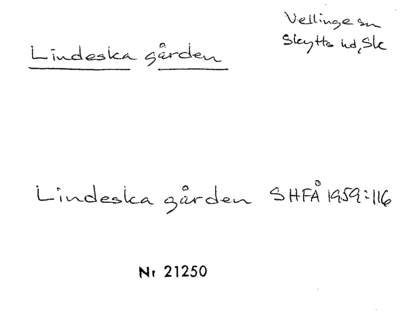 Vellinge sn
Skytts hd, Sk
Lindeska gården
Lindeska gården SHFÅ 1959:116
Nr 21250